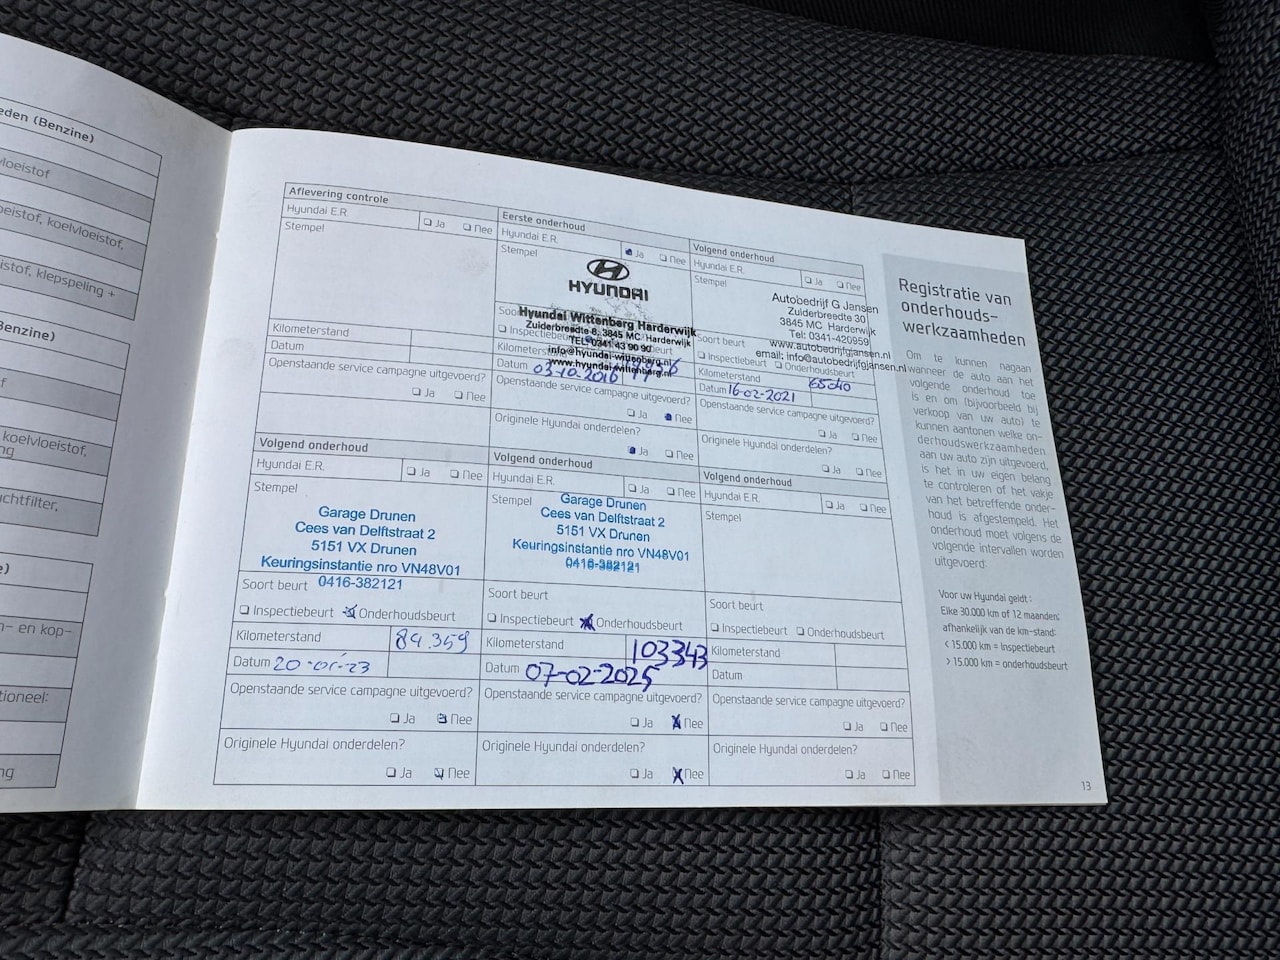 eden (Benzine)
vloeistof
oeistof, koelvloeistof,
istof, klepspeling +
Benzine)
f
koelvloeistof,
ng
uchtfilter,
e)
n- en kop-
tioneel:
ng
Aflevering controle
Hyundai E.R.
Ja Nee
Stempel
Kilometerstand
Datum
Openstaande service campagne uitgevoerd?
Ja Nee
Eerste onderhoud
Hyundai E.R.
Ja Nee
Stempel
HYUNDAI
Hyundai Wittenberg Harderwijk
Zuiderbreedte 8, 3845 MC Harderwijk
TEL: 0341 43 90 90
info@hyundai-wittenberg.nl
www.hyundai-wittenberg.nl
Datum 03-10-2016
Openstaande service campagne uitgevoerd?
Ja Nee
Originele Hyundai onderdelen?
Ja Nee
Volgend onderhoud
Hyundai E.R.
Ja Nee
Stempel
Autobedrijf G Jansen
Zuiderbreedte 30
3845 MC Harderwijk
Tel: 0341-420959
www.autobedrijfgjansen.nl
email: info@autobedrijfgjansen.nl
Soort beurt
Inspectiebeurt Onderhoudsbeurt
Kilometerstand 65040
Datum 16-02-2021
Openstaande service campagne uitgevoerd?
Ja Nee
Originele Hyundai onderdelen?
Ja Nee
Volgend onderhoud
Hyundai E.R.
Ja Nee
Stempel
Garage Drunen
Cees van Delftstraat 2
5151 VX Drunen
Keuringsinstantie nro VN48V01
0416-382121
Soort beurt
Inspectiebeurt Onderhoudsbeurt
Kilometerstand 84.359
Datum 20-01-23
Openstaande service campagne uitgevoerd?
Ja Nee
Originele Hyundai onderdelen?
Ja Nee
Volgend onderhoud
Hyundai E.R.
Ja Nee
Stempel
Garage Drunen
Cees van Delftstraat 2
5151 VX Drunen
Keuringsinstantie nro VN48V01
0416-382121
Soort beurt
Inspectiebeurt Onderhoudsbeurt
Kilometerstand 103343
Datum 07-02-2025
Openstaande service campagne uitgevoerd?
Ja Nee
Originele Hyundai onderdelen?
Ja Nee
Volgend onderhoud
Hyundai E.R.
Ja Nee
Stempel
Soort beurt
Inspectiebeurt Onderhoudsbeurt
Kilometerstand
Datum
Openstaande service campagne uitgevoerd?
Ja Nee
Originele Hyundai onderdelen?
Ja Nee
Registratie van
onderhouds-
werkzaamheden
Om te kunnen nagaan
wanneer de auto aan het
volgende onderhoud toe
is en om (bijvoorbeeld bij
verkoop van uw auto) te
kunnen aantonen welke on-
derhoudswerkzaamheden
aan uw auto zijn uitgevoerd,
is het in uw eigen belang
te controleren of het vakje
van het betreffende onder-
houd is afgestempeld. Het
onderhoud moet volgens de
volgende intervallen worden
uitgevoerd:
Voor uw Hyundai geldt :
Elke 30.000 km of 12 maanden,
afhankelijk van de km-stand:
< 15.000 km = Inspectiebeurt
> 15.000 km = onderhoudsbeurt
13